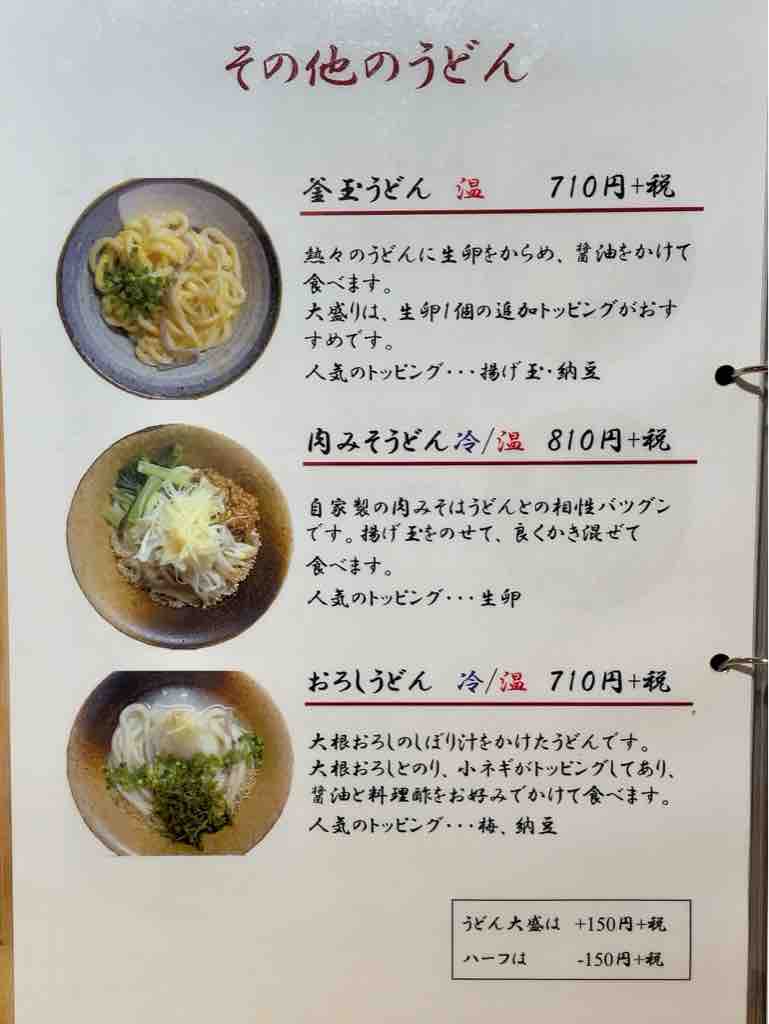 その他のうどん
釜玉うどん 温 710円+税
熱々のうどんに生卵をからめ、醤油をかけて
食べます。
大盛りは、生卵1個の追加トッピングがおす
すめです。
人気のトッピング・・・揚げ玉・納豆
肉みそうどん 冷/温 810円+税
自家製の肉みそはうどんとの相性バツグン
です。揚げ玉をのせて、良くかき混ぜて
食べます。
人気のトッピング・・・生卵
おろしうどん 冷/温 710円+税
大根おろしのしぼり汁をかけたうどんです。
大根おろしとのり、小ネギがトッピングしてあり、
醤油と料理酢をお好みでかけて食べます。
人気のトッピング・・・梅、納豆
うどん大盛は +150円+税
ハーフは -150円+税